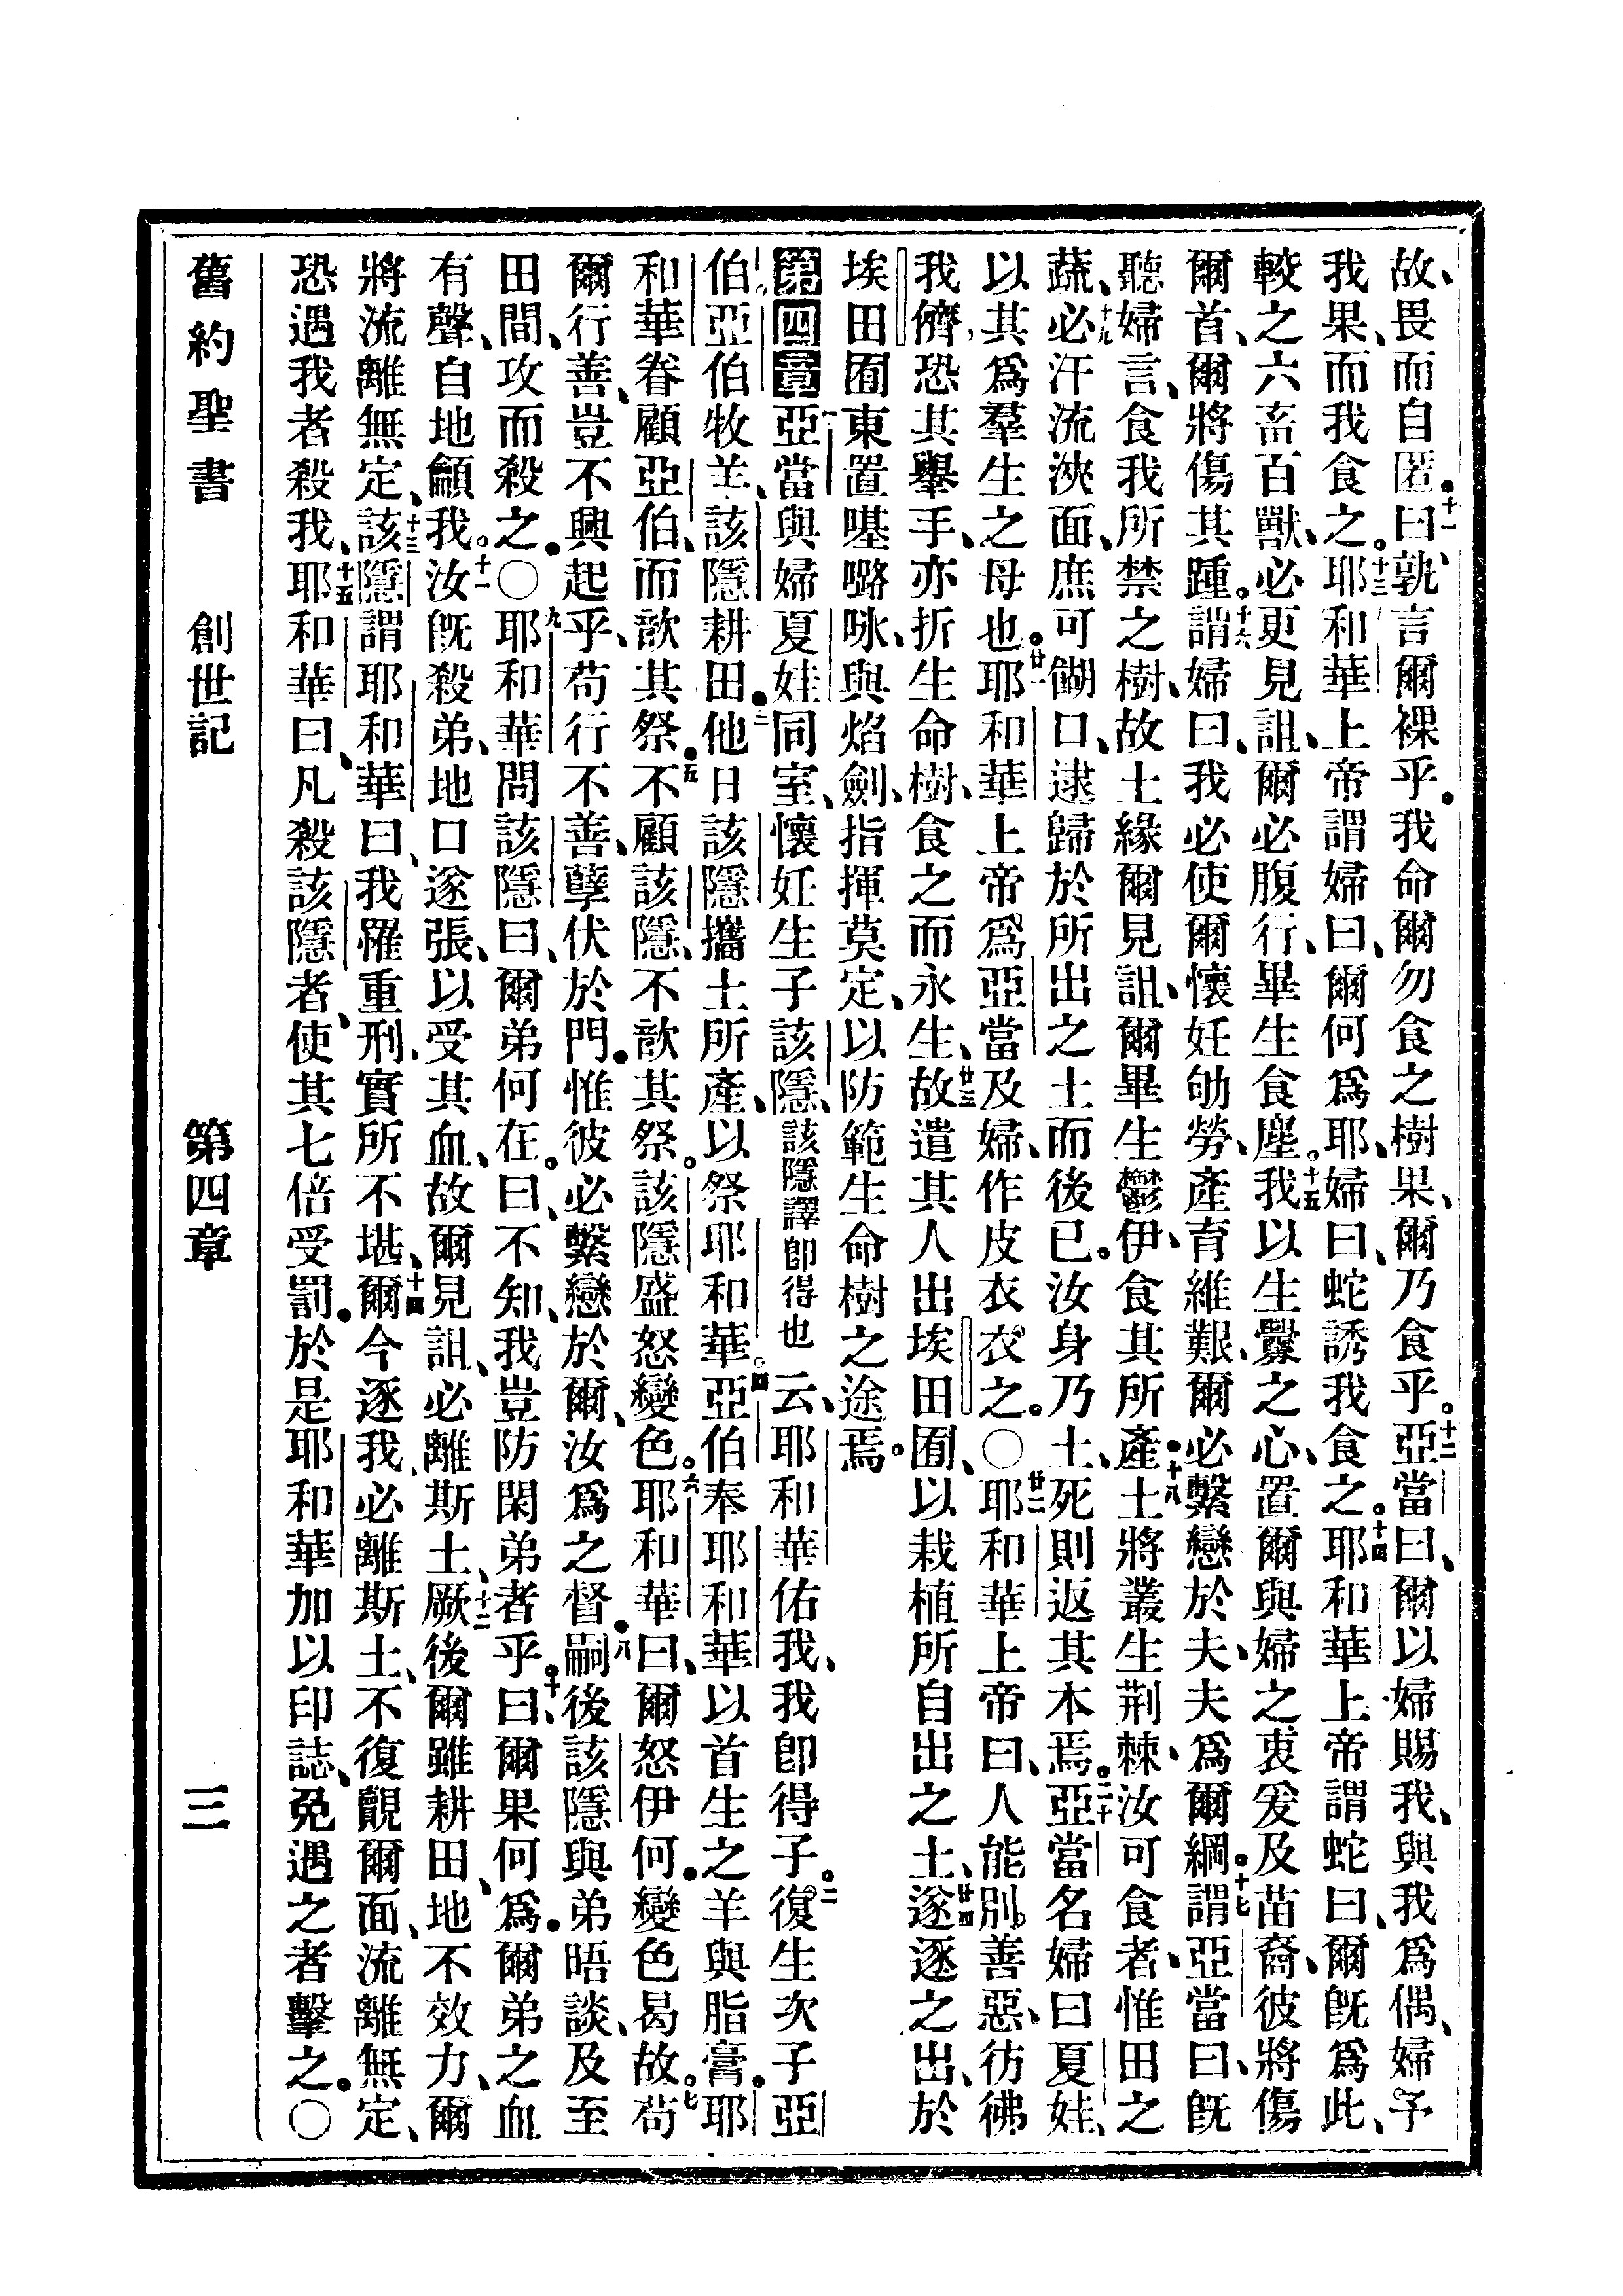 故、畏而自匿。十一曰、孰言爾裸乎。我命爾勿食之樹果、爾乃食乎。十二亞當曰、爾以婦賜我、與我爲偶、婦予
我果、而我食之。十三耶和華上帝謂婦曰、爾何爲耶、婦曰、蛇誘我食之。十四耶和華上帝謂蛇曰、爾旣爲此、
較之六畜百獸、必更見詛、爾必腹行、畢生食塵。十五我以生釁之心、置爾與婦之衷、爰及苗裔、彼將傷
爾首、爾將傷其踵。十六謂婦曰、我必使爾懷妊劬勞、產育維艱、爾必繫戀於夫、夫爲爾綱。十七謂亞當曰、旣
聽婦言、食我所禁之樹、故土緣爾見詛、爾畢生鬱伊、食其所產。十八土將叢生荆棘、汝可食者、惟田之
蔬、十九必汗流浹面、庶可餬口、逮歸於所出之土而後已。汝身乃土、死則返其本焉。二十亞當名婦曰夏娃、
以其爲羣生之母也。廿一耶和華上帝爲亞當及婦、作皮衣衣之。〇廿二耶和華上帝曰、人能別善惡、彷彿
我儕、恐其舉手、亦折生命樹、食之而永生、廿三故遣其人出埃田囿、以栽植所自出之土、廿四遂逐之出、於
埃田囿東置𠼻㗰咏、與焰劍、指揮莫定、以防範生命樹之途焉。
第四章 一亞當與婦夏娃同室、懷妊生子該隱、該隱譯卽得也云、耶和華佑我、我卽得子。二復生次子亞
伯、亞伯牧羊、該隱耕田。三他日該隱攜土所產、以祭耶和華。四亞伯奉耶和華以首生之羊與脂膏。耶
和華眷顧亞伯、而歆其祭。五不顧該隱、不歆其祭。該隱盛怒變色。六耶和華曰、爾怒伊何。變色曷故。七苟
爾行善、豈不興起乎、苟行不善、孽伏於門。惟彼必繫戀於爾、汝爲之督。八嗣後該隱與弟晤談、及至
田間、攻而殺之。〇九耶和華問該隱曰、爾弟何在。曰、不知、我豈防閑弟者乎。十曰、爾果何爲。爾弟之血
有聲、自地籲我。十一汝旣殺弟、地口遂張、以受其血、故爾見詛、必離斯土、十二厥後爾雖耕田、地不效力、爾
將流離無定、十三該隱謂耶和華曰、我罹重刑、實所不堪、十四爾今逐我、必離斯土、不復覿爾面、流離無定、
恐遇我者殺我、十五耶和華曰、凡殺該隱者、使其七倍受罰。於是耶和華加以印誌、免遇之者擊之。〇
舊約聖書 創世記 第四章 三